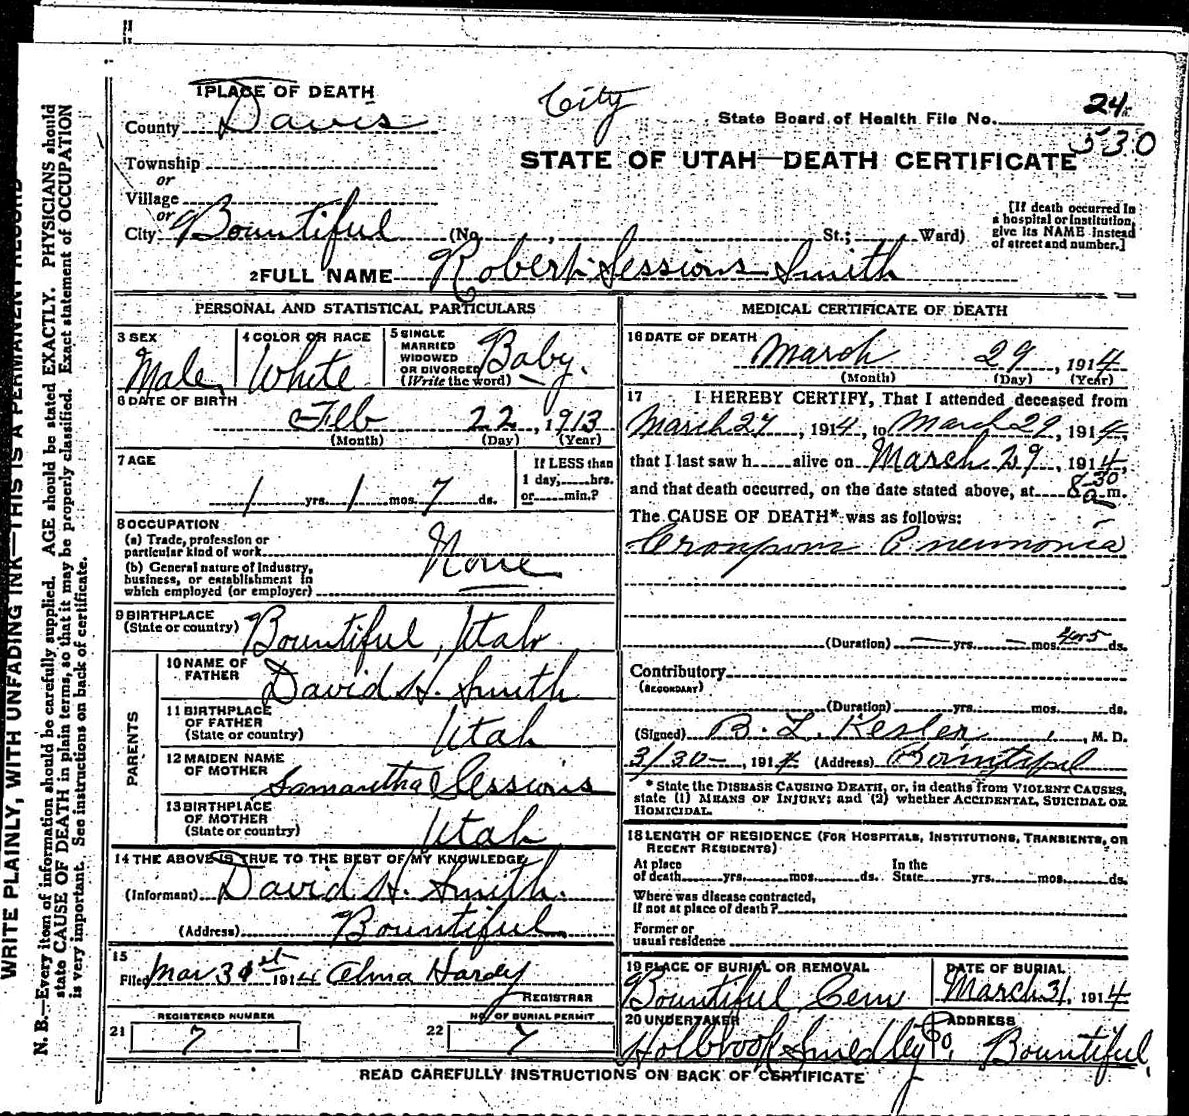 1 PLACE OF DEATH
City
State Board of Health File No. 24
530
County Davis
STATE OF UTAH—DEATH CERTIFICATE
Township
or
Village
or
City Bountiful (No. , St.; Ward)
[If death occurred in a hospital or institution, give its NAME instead of street and number.]
2 FULL NAME Robert Sessions Smith
PERSONAL AND STATISTICAL PARTICULARS
3 SEX Male
4 COLOR OR RACE White
5 SINGLE MARRIED WIDOWED OR DIVORCED (Write the word) Baby.
6 DATE OF BIRTH
Feb 22, 1913
(Month) (Day) (Year)
7 AGE
1 yrs. 1 mos. 7 ds.
If LESS than
1 day, hrs.
or min.?
8 OCCUPATION
(a) Trade, profession or
particular kind of work
None
(b) General nature of industry,
business, or establishment in
which employed (or employer)
9 BIRTHPLACE
(State or country) Bountiful, Utah
PARENTS
10 NAME OF
FATHER David H. Smith
11 BIRTHPLACE
OF FATHER
(State or country) Utah
12 MAIDEN NAME
OF MOTHER Samantha Sessions
13 BIRTHPLACE
OF MOTHER
(State or country) Utah
14 THE ABOVE IS TRUE TO THE BEST OF MY KNOWLEDGE
(Informant) David H. Smith.
(Address) Bountiful
15
Filed Mar 31st 1914 Alma Hardy
REGISTRAR
REGISTERED NUMBER
21 7
NO. OF BURIAL PERMIT
22 7
MEDICAL CERTIFICATE OF DEATH
16 DATE OF DEATH
March 29, 1914
(Month) (Day) (Year)
17 I HEREBY CERTIFY, That I attended deceased from
March 27, 1914, to March 29, 1914,
that I last saw h alive on March 29, 1914,
and that death occurred, on the date stated above, at 8 30 a m.
The CAUSE OF DEATH* was as follows:
Pneumonia
(Duration) — yrs. — mos. 4 or 5 ds.
Contributory
(SECONDARY)
(Duration) yrs. mos. ds.
(Signed) B. L. Kesler, M. D.
3/30—, 1914 (Address) Bountiful
* State the DISEASE CAUSING DEATH, or, in deaths from VIOLENT CAUSES,
state (1) MEANS OF INJURY; and (2) whether ACCIDENTAL, SUICIDAL OR
HOMICIDAL.
18 LENGTH OF RESIDENCE (FOR HOSPITALS, INSTITUTIONS, TRANSIENTS, OR
RECENT RESIDENTS)
At place
of death yrs. mos. ds.
In the
State yrs. mos. ds.
Where was disease contracted,
if not at place of death?
Former or
usual residence
19 PLACE OF BURIAL OR REMOVAL
Bountiful Cem
DATE OF BURIAL
March 31, 1914
20 UNDERTAKER
Holbrook Smedley Co.
ADDRESS
Bountiful
READ CAREFULLY INSTRUCTIONS ON BACK OF CERTIFICATE
WRITE PLAINLY, WITH UNFADING INK—THIS IS A PERMANENT RECORD
N. B.—Every item of information should be carefully supplied. AGE should be stated EXACTLY. PHYSICIANS should
state CAUSE OF DEATH in plain terms, so that it may be properly classified. Exact statement of OCCUPATION
is very important. See instructions on back of certificate.